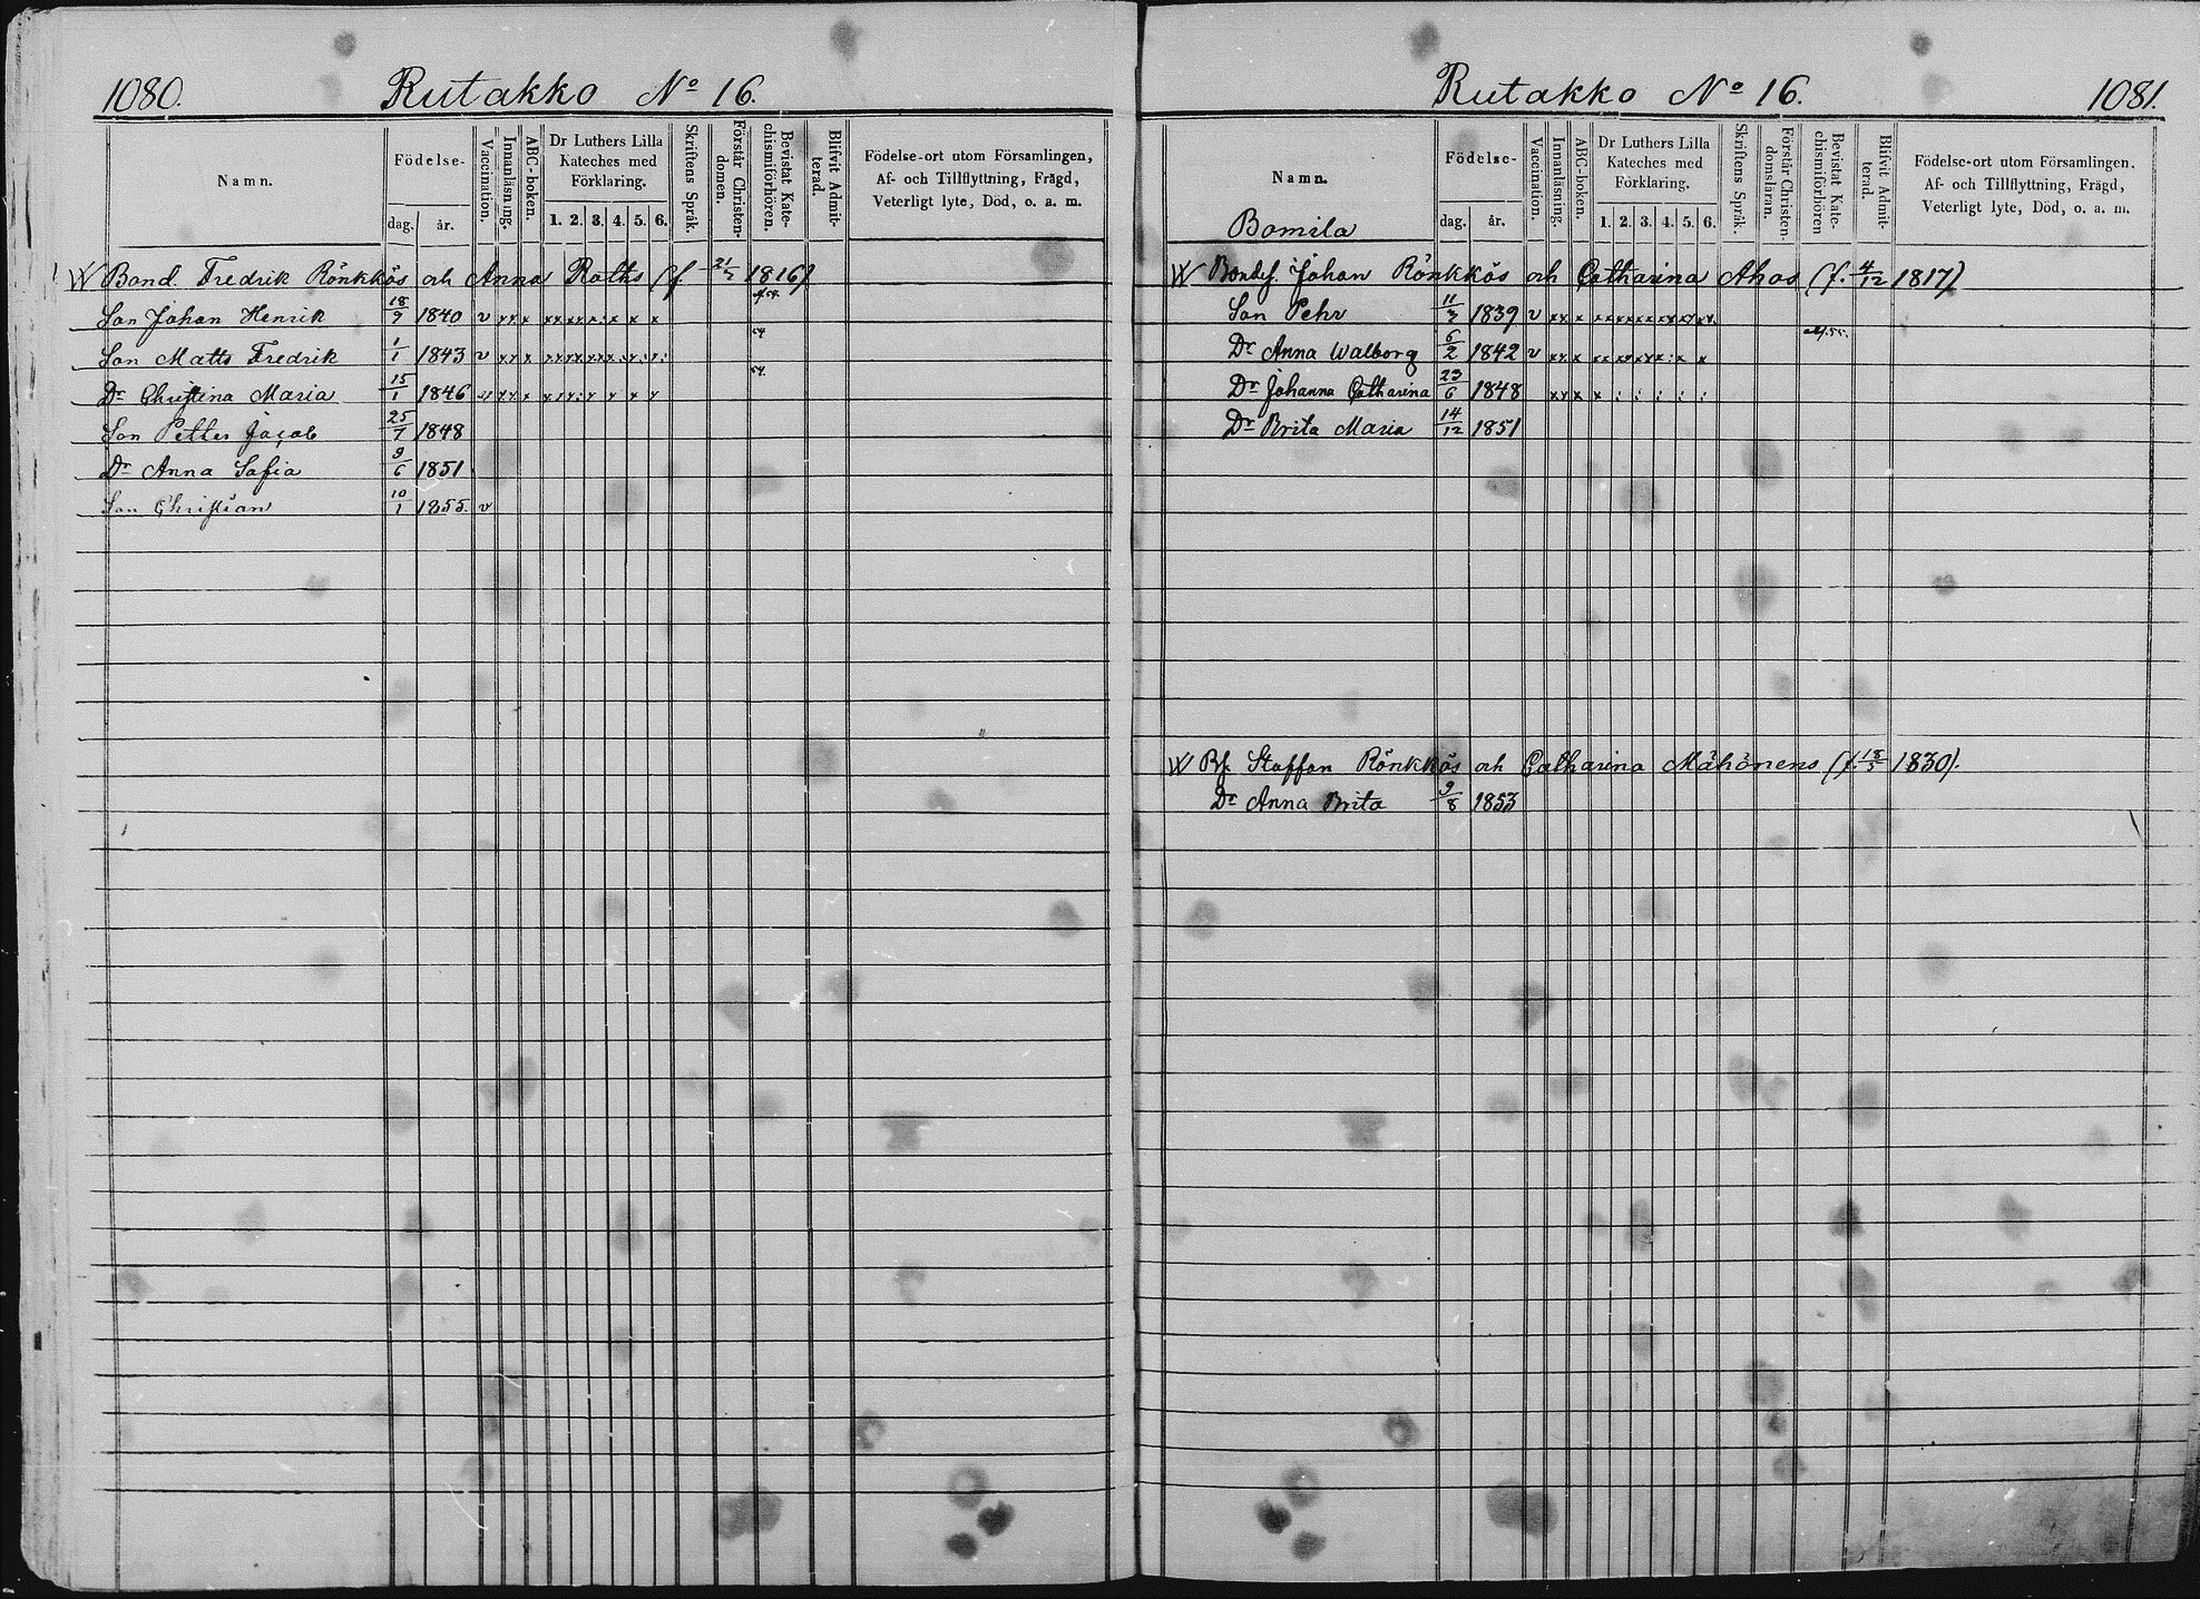 1080. Rutakko Nº 16.
Namn.
Födelse-
dag. år.
Vaccination.
Innanläsning.
ABC-boken.
Dr Luthers Lilla
Kateches med
Förklaring.
1. 2. 3. 4. 5. 6.
Skriftens Språk.
Förstår Christen-
domen.
Bevistat Kate-
chismiförhören.
Blifvit Admit-
terad.
Födelse-ort utom Församlingen,
Af- och Tillflyttning, Frägd,
Veterligt lyte, Död, o. a. m.
W Bond. Fredrik Rönkkös och Anna Roths (f. 1816)
Son Johan Henrik 18/9 1840 v xx x xx xx x: x x x 54.
Son Matts Fredrik 1/1 1843 v xx x 54
Dr Christina Maria 15/1 1846 v xx x 54.
Son Petter Jacob 25/7 1848
Dr Anna Sofia 9/6 1851
Son Christian 10/1 1855. v
Rutakko Nº 16. 1081.
Namn.
Bomila
Födelse-
dag. år.
Vaccination.
Innanläsning.
ABC-boken.
Dr Luthers Lilla
Kateches med
Förklaring.
1. 2. 3. 4. 5. 6.
Skriftens Språk.
Förstår Christen-
domsläran.
Bevistat Kate-
chismiförhören
Blifvit Admit-
terad.
Födelse-ort utom Församlingen.
Af- och Tillflyttning, Frägd,
Veterligt lyte, Död, o. a. m.
W Bondes. Johan Rönkkös och Catharina Ahos (f. 4/12 1817)
Son Pehr 11/3 1839 v xx x xx xx xx xx xx xx.
Dr Anna Walborg 6/2 1842 v xx x 55.
Dr Johanna Catharina 23/6 1848 xx x x : : : : :
Dr Brita Maria 14/12 1851
W Bf. Staffan Rönkkös och Catharina Mähönens (f. 18/5 1830).
Dr Anna Brita 9/8 1853